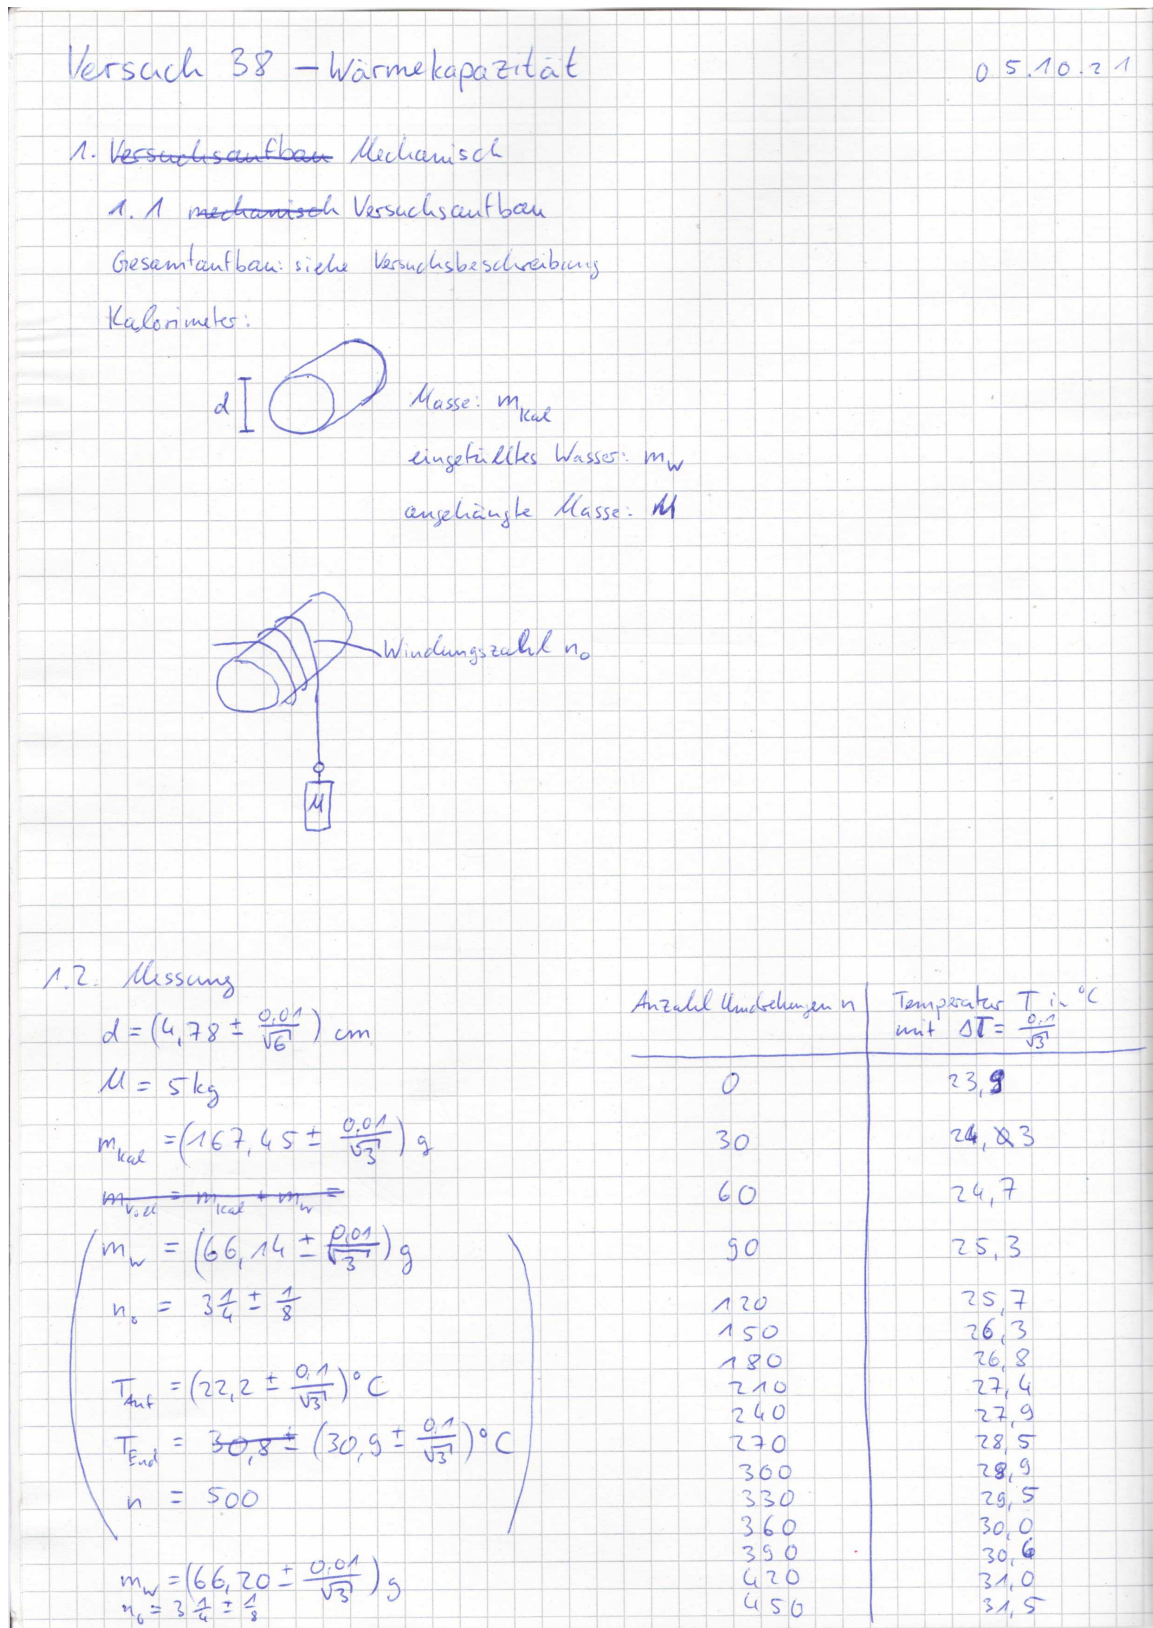 Versuch 38 – Wärmekapazität 05.10.21
1. Versuchsaufbau Mechanisch
1.1 mechanisch Versuchsaufbau
Gesamtaufbau: siehe Versuchsbeschreibung
Kalorimeter:
d
Masse: m_Kal
eingefülltes Wasser: m_W
angehängte Masse: M
Windungszahl n_0
M
1.2. Messung
d = (4,78 ± 0,01/√6) cm
M = 5 kg
m_Kal = (167,45 ± 0,01/√3) g
m_voll = m_Kal + m_W =
m_W = (66,14 ± 0,01/√3) g
n_0 = 3 1/4 ± 1/8
T_Anf = (22,2 ± 0,1/√3) °C
T_End = 30,8 ± (30,9 ± 0,1/√3) °C
n = 500
m_W = (66,20 ± 0,01/√3) g
n_0 = 3 1/4 ± 1/8
Anzahl Umdrehungen n | Temperatur T in °C
mit ΔT = 0,1/√3
0 23,9
30 24,3
60 24,7
90 25,3
120 25,7
150 26,3
180 26,8
210 27,4
240 27,9
270 28,5
300 28,9
330 29,5
360 30,0
390 30,6
420 31,0
450 31,5